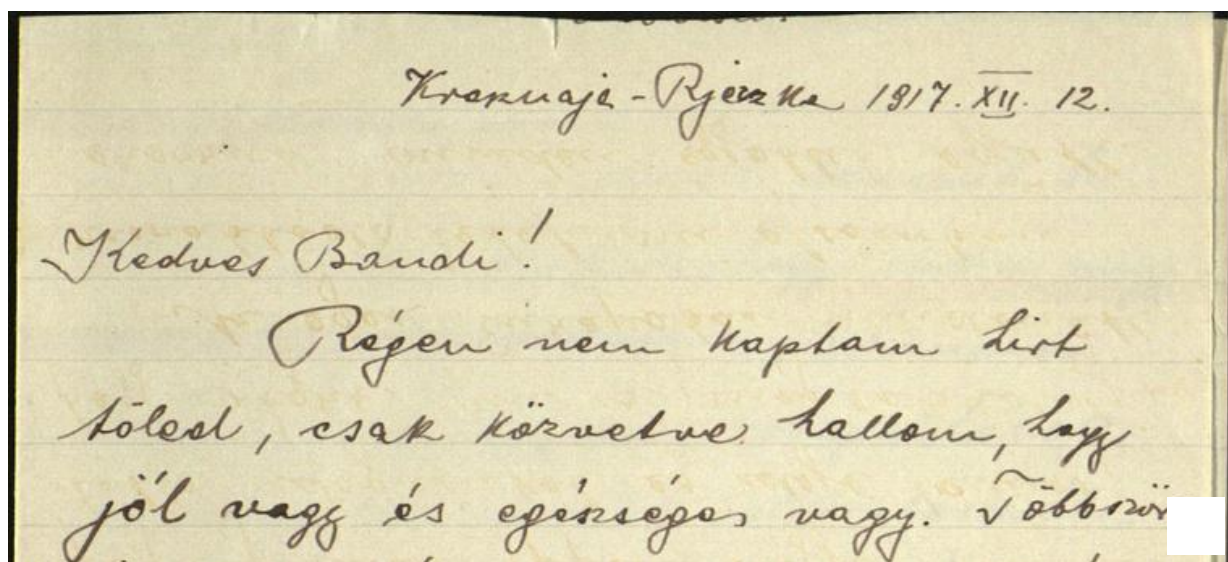 Krasnaja-Rjezka 1917. XII. 12.
Kedves Bandi!
Régen nem kaptam hirt
tőled, csak közvetve hallom, hogy
jól vagy és egészséges vagy. Többször